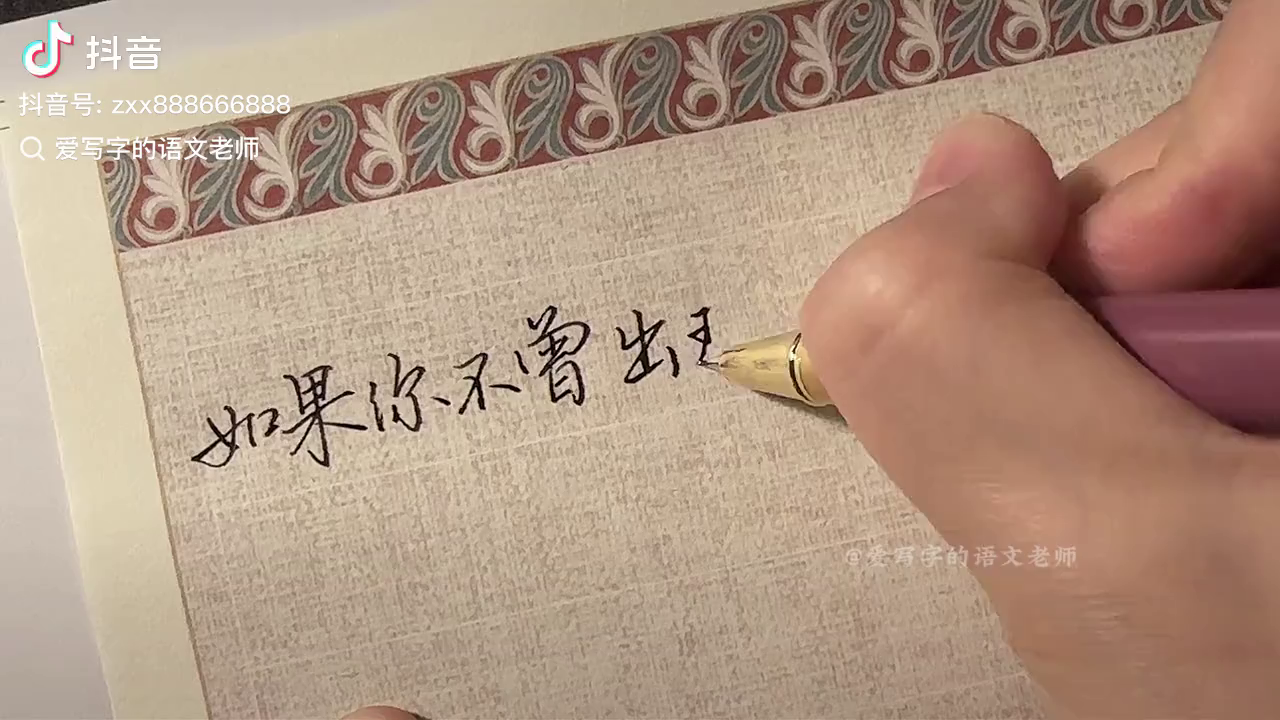 抖音
抖音号: zxx888666888
爱写字的语文老师
如果你不曾出王
@爱写字的语文老师